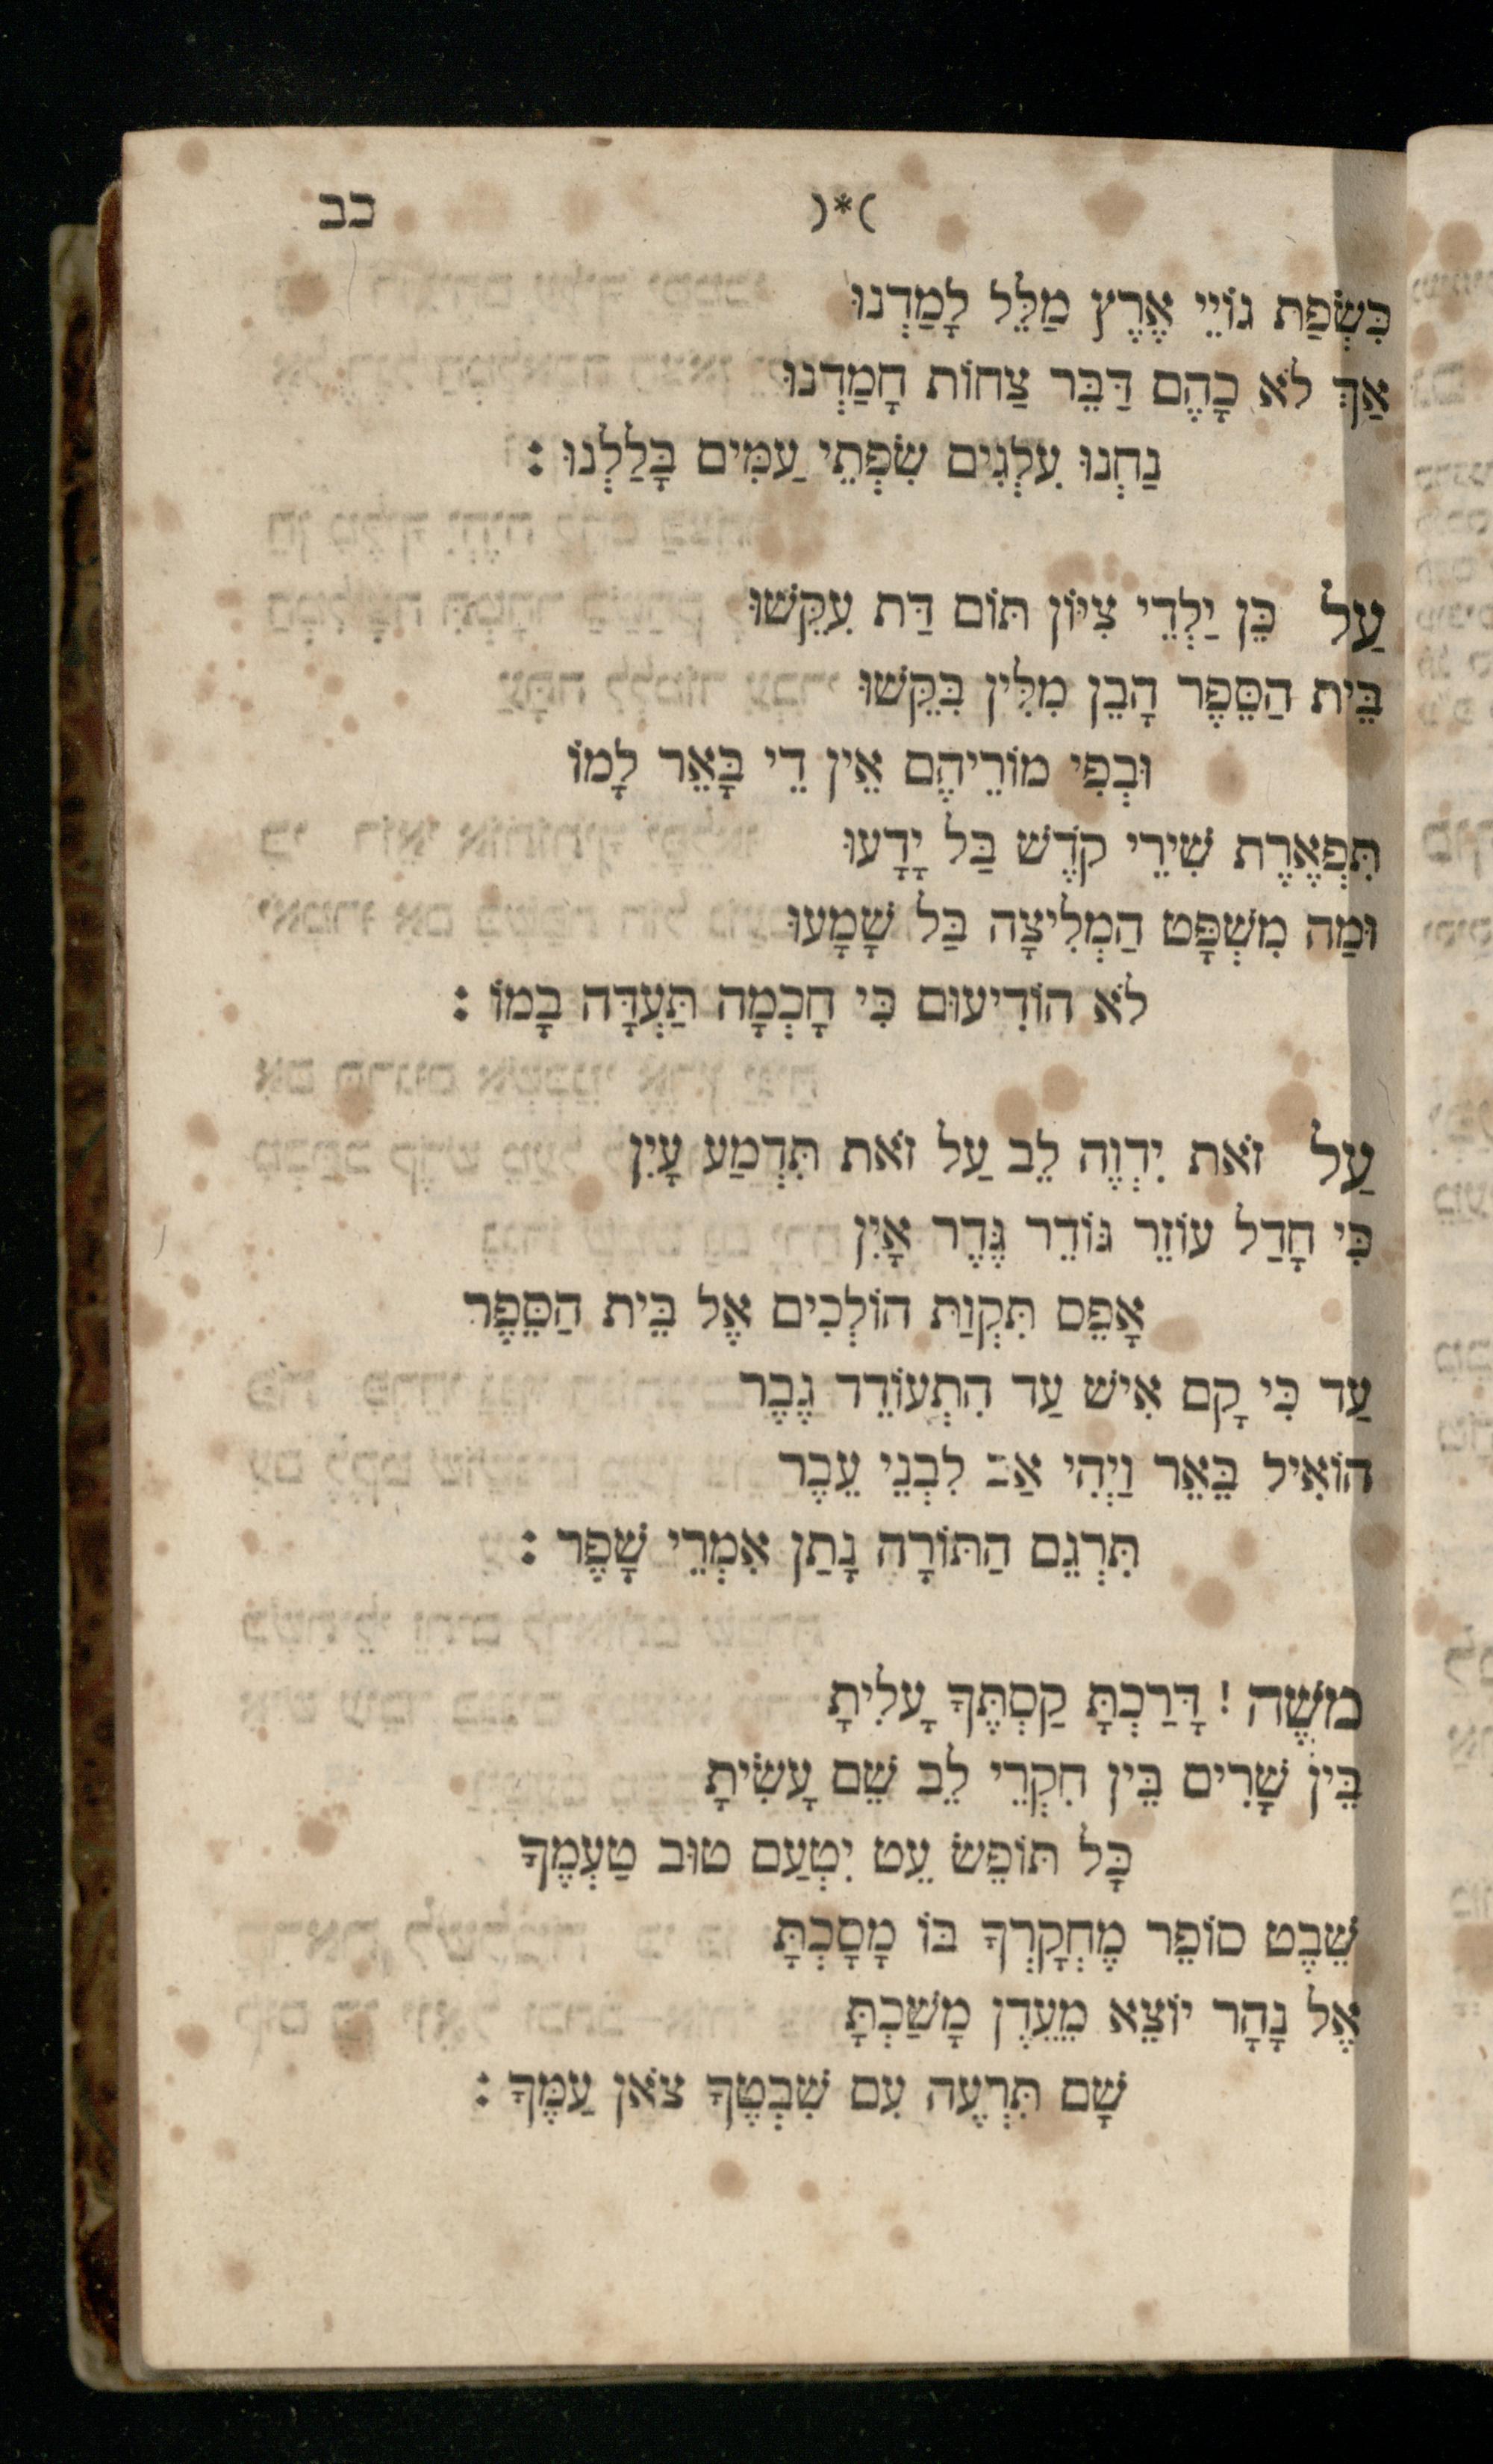 )*( כב
כִּשְׂפַת גּוֹיֵי אֶרֶץ מַלֵּל לָמַדְנוּ
אַךְ לֹא כָהֶם דַּבֵּר צַחוֹת חָמַדְנוּ
נַחְנוּ עִלְגִים שִׂפְתֵי עַמִּים בָּלַלְנוּ :
עַל כֵּן יַלְדֵי צִיּוֹן תּוֹם דַּת עִקְּשׁוּ
בֵּית הַסֵּפֶר הָבֵן מִלִּין בִּקֵּשׁוּ
וּבְפִי מוֹרֵיהֶם אֵין דֵּי בָּאֵר לָמוֹ
תִּפְאֶרֶת שִׁירֵי קֹדֶשׁ בַּל יָדָעוּ
וּמַה מִשְׁפָּט הַמְלִיצָה בַּל שָׁמָעוּ
לֹא הוֹדִיעוּם כִּי חָכְמָה תַּעְדָּה בָמוֹ :
עַל זֹאת יִדְוֶה לֵב עַל זֹאת תִּדְמַע עָיִן
כִּי חָדַל עוֹזֵר גּוֹדֵר גֶּדֶר אָיִן
אָפֵס תִּקְוַת הוֹלְכִים אֶל בֵּית הַסֵּפֶר
עַד כִּי קָם אִישׁ עַד הִתְעוֹדֵד גֶבֶר
הוֹאִיל בֵּאֵר וַיְהִי אַב לִבְנֵי עֵבֶר
תִּרְגֵּם הַתּוֹרָה נָתַן אִמְרֵי שָׁפֶר :
מֹשֶׁה ! דָּרַכְתָּ קַסְתֶּךָ עָלִיתָ
בֵּין שָׂרִים בֵּין חִקְרֵי לֵב שֵׁם עָשִׂיתָ
כָּל תּוֹפֵשׂ עֵט יִטְעַם טוּב טַעְמֶךָ
שֵׁבֶט סוֹפֵר מֶחְקָרְךָ בּוֹ מָסָכְתָּ
אֶל נָהָר יוֹצֵא מֵעֵדֶן מָשַׁכְתָּ
שָׁם תִּרְעֶה עִם שִׁבְטֶךָ צֹאן עַמֶּךָ :